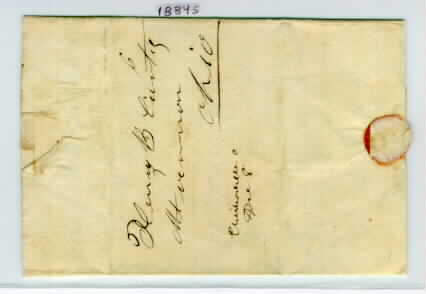 18845
Henry B Curtis
Mt vernon
Ohio
O
Dec 8